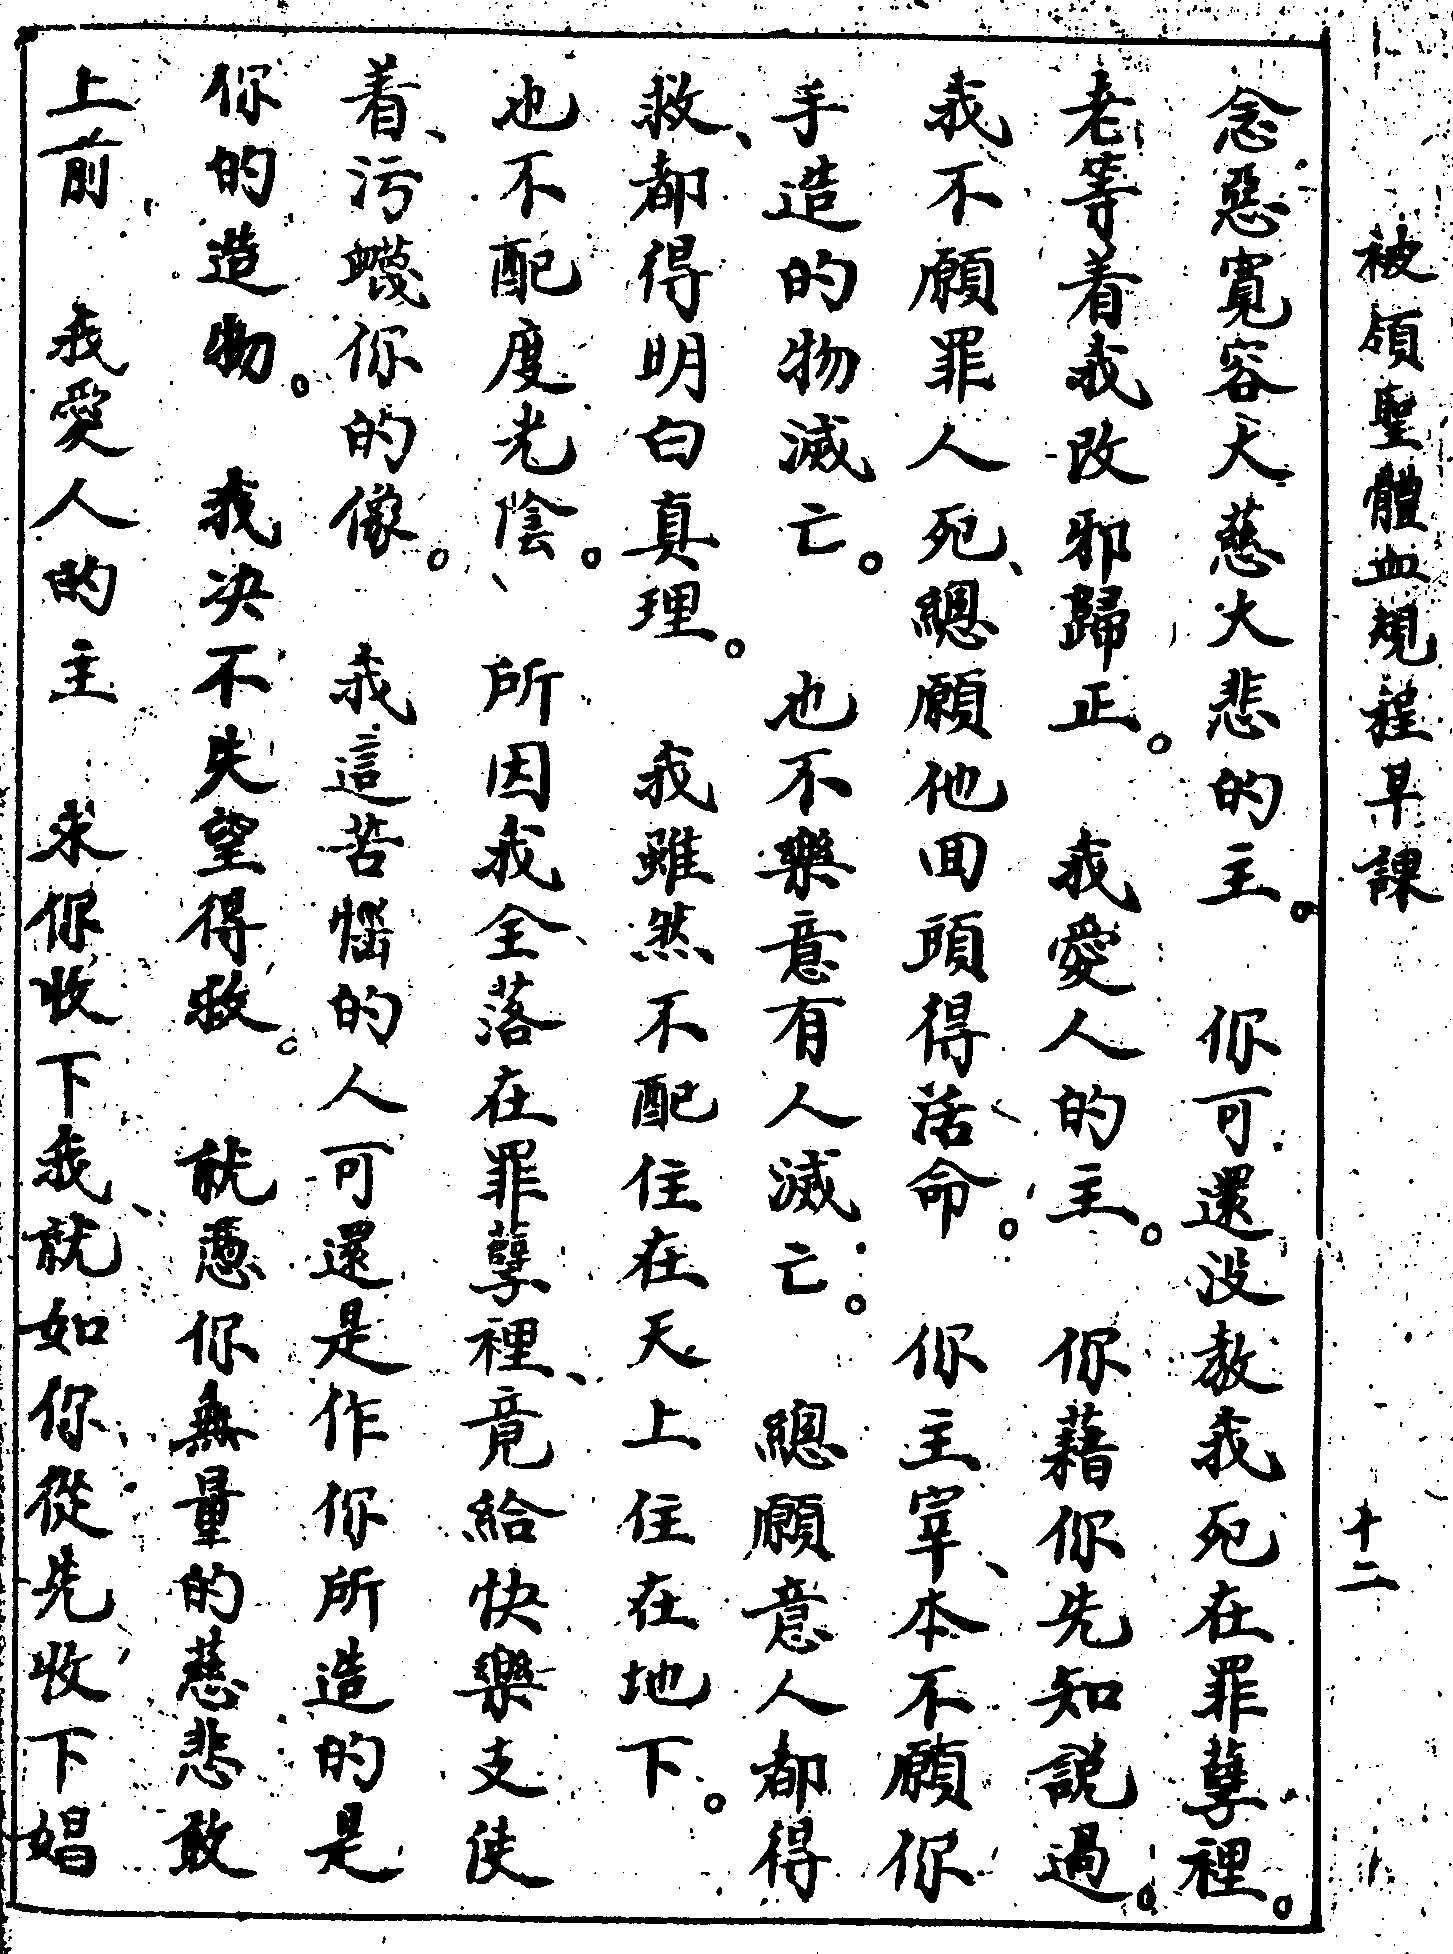 被領聖體血規程早課 十二
念惡寬容大慈大悲的主。 你可還没教我死在罪孽裡。
老等着我改邪歸正。 我愛人的主。 你藉你先知說過。
我不願罪人死、總願他回頭得活命。 你主宰、本不願你
手造的物滅亡。 也不樂意有人滅亡。 總願意人都得
救、都得明白真理。 我雖然不配住在天上住在地下。
也不配度光陰。 所因我全落在罪孽裡、竟給快樂支使
着、污衊你的像。 我這苦惱的人可還是作你所造的是
你的造物。 我决不失望得救。 就憑你無量的慈悲敢
上前 我愛人的主 求你收下我、就如你從先收下娼